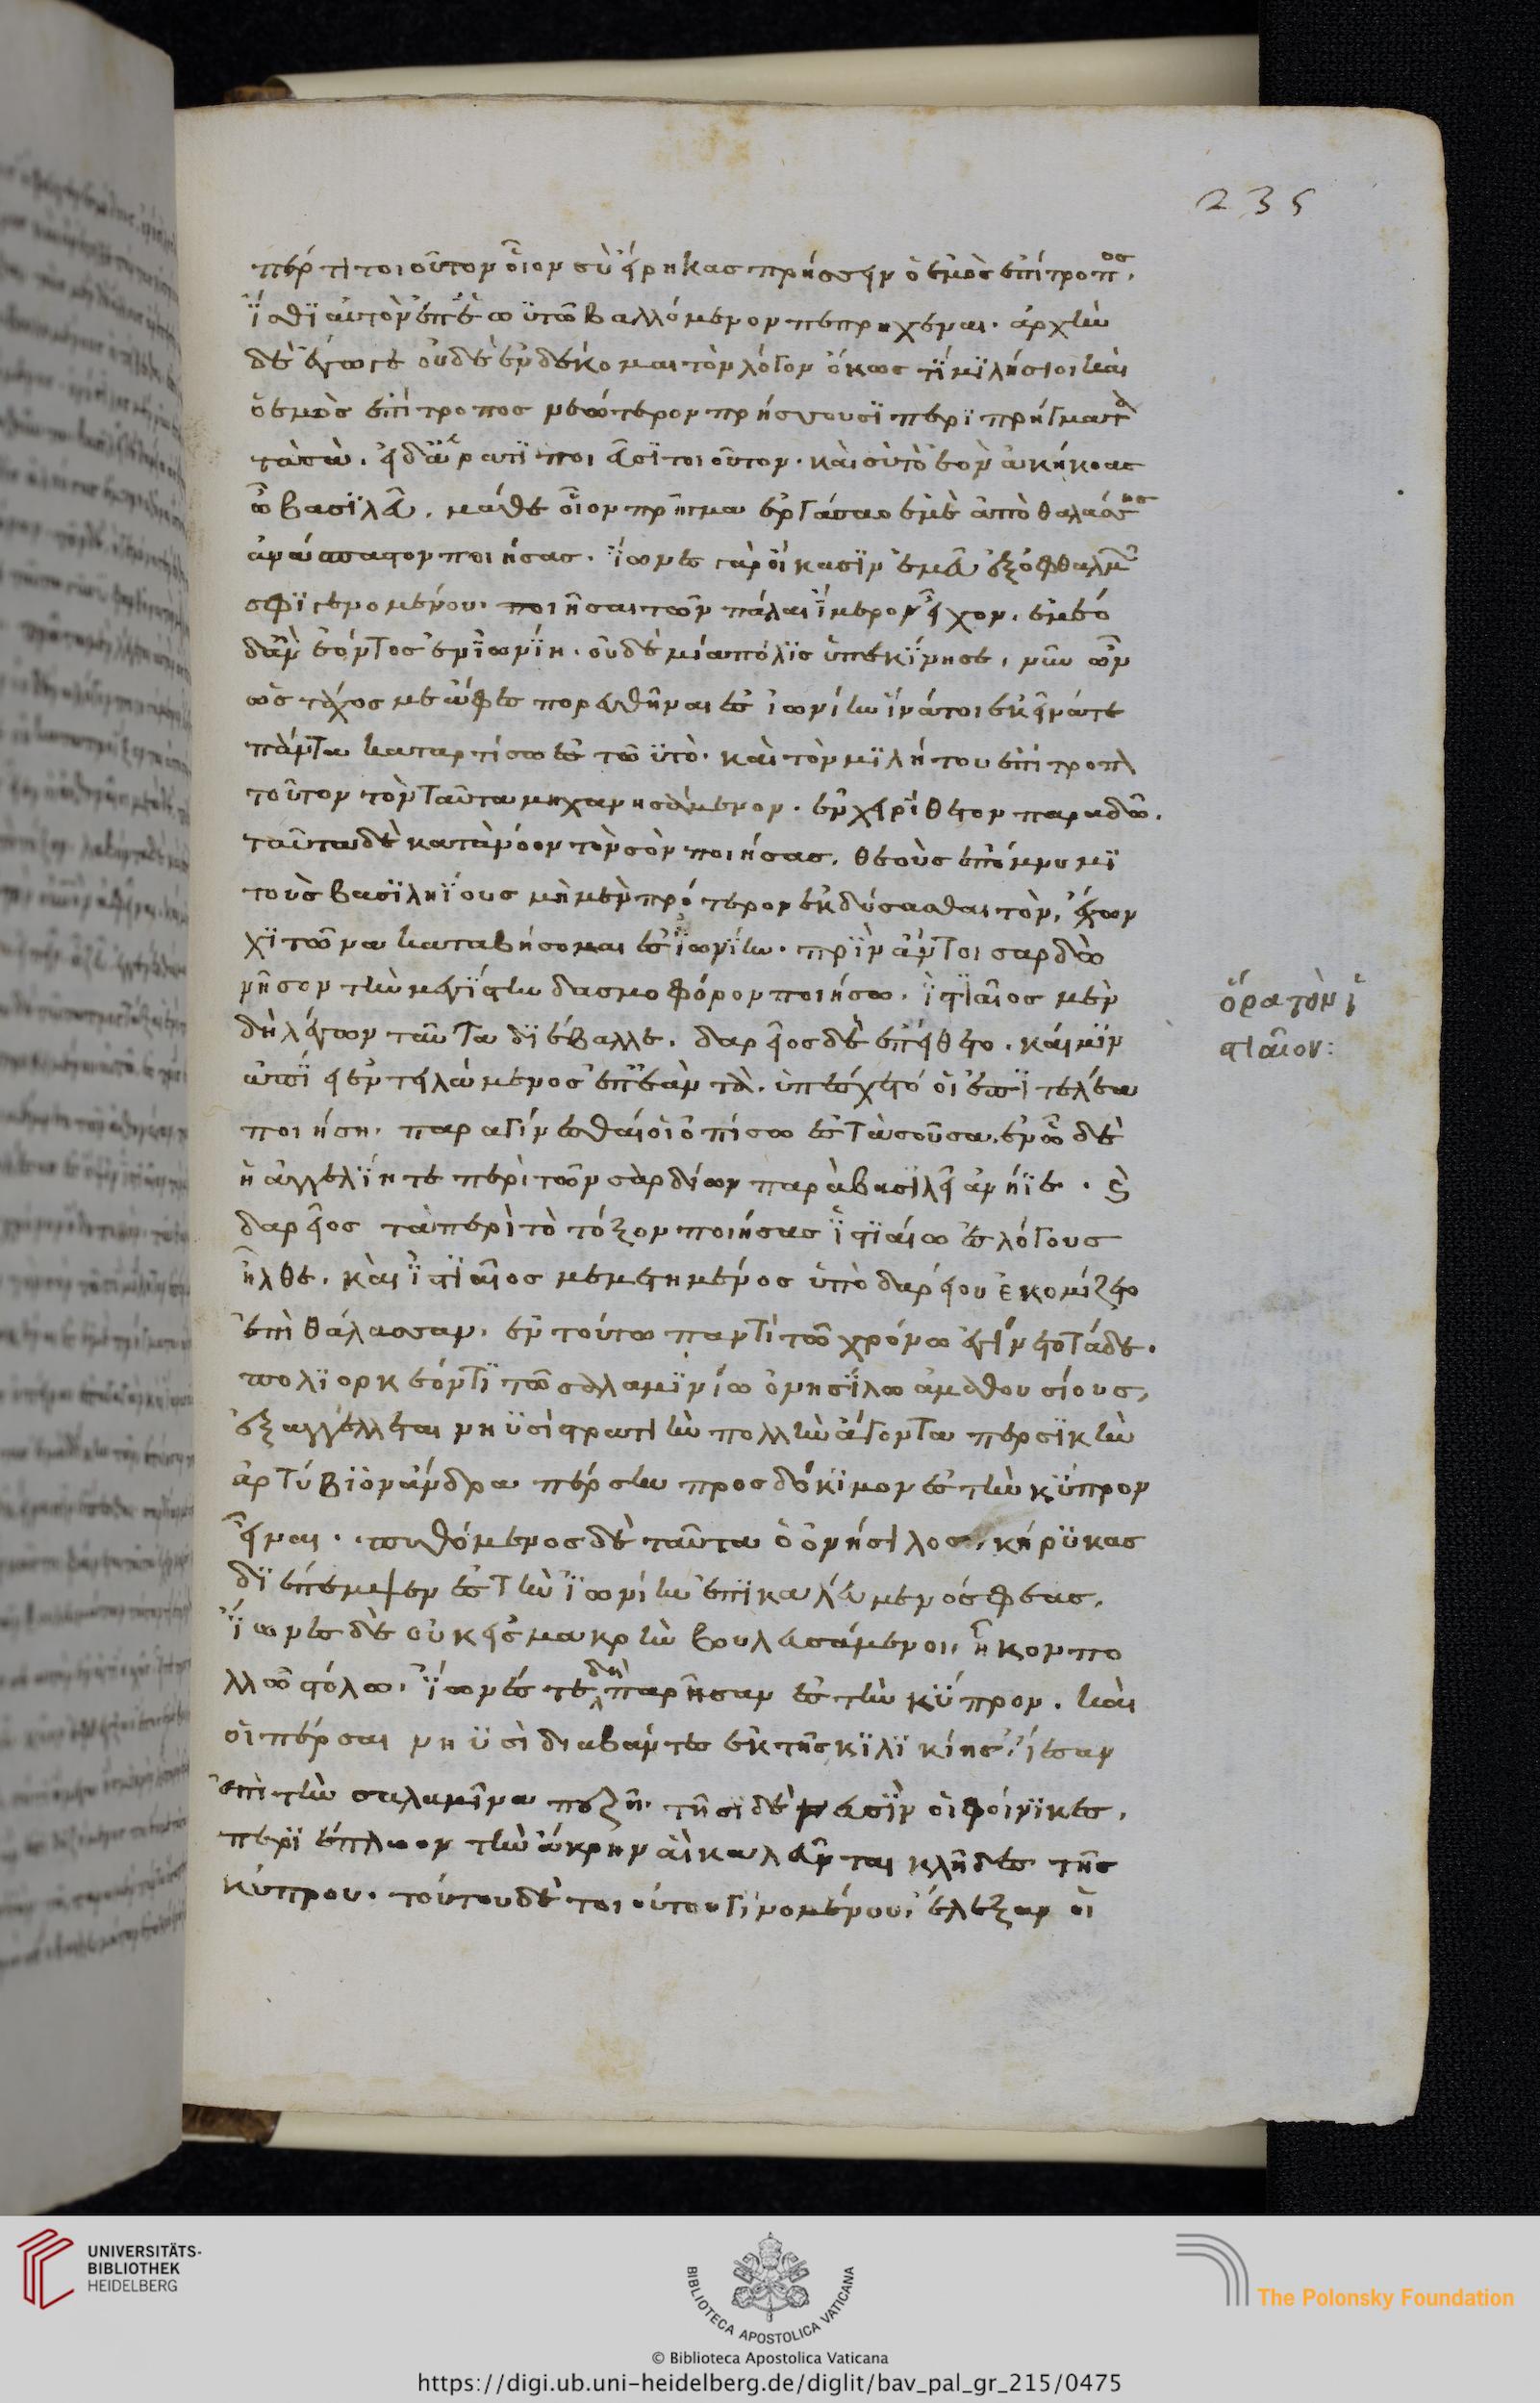 235
περ τι τοιοῦτον οἷον σὺ εἴρηκας πρήσσειν ὁ ἐμὸς ἐπίτροπος,
ἴσθι αὐτὸν ἐπ' ἑωϋτῶ βαλλόμενον πεπρηχέναι. ἀρχὴν
δὲ ἔγωγε οὐδὲ ἐνδέκομαι τὸν λόγον ὅκως τΐ μιλήσιοι καὶ
ὁ ἐμὸς ἐπίτροπος νεώτερον πρήσσουσϊ περϊ πρήγματα
τὰ σά. εἰ δ' ἄρα τϊ ποιεῦσϊ τοιοῦτον. καὶ σὺ τὸ ἐὸν ἀκήκοας
ὦ βασϊλεῦ. μάθε οἷον πρῆγμα ἐργάσαο ἐμὲ ἀπὸ θαλάσσης
ἀνάσπαστον ποιήσας. ἴωνες γὰρ οἴκασϊν ἐμεῦ ἐξ ὀφθαλμῶν
σφϊ γενομένου. ποιῆσαι τῶν πάλαι ἵμερον εἶχον. ἐμέο
δ' ἂν ἐόντος ἐν ἰωνίη. οὐδὲ μία πόλϊς ὑπεκίνησε, νῦν ὦν
ὡς τάχος με ἄφες πορευθῆναι ἐς ἰωνίην ἵνά τοι ἐκεῖνά τε
πάντα καταρτίσω ἐς τωϋτὸ. καὶ τὸν μϊλήτου ἐπίτροπον
τοῦτον τὸν ταῦτα μηχανησάμενον. ἐνχειρίθετον παραδῶ.
ταῦτα δὲ κατὰ νόον τὸν σὸν ποιήσας. θεοὺς ἐπόμνυμϊ
τοὺς βασϊληΐους μὴ μὲν πρότερον ἐκδύσασθαι τὸν, ἔχων
χϊτῶνα καταβήσομαι ἐς ἰωνίην. πρϊν ἄν τοι σαρδὼ
νῆσον τὴν μεγίστην δασμοφόρον ποιήσω. ἱστιαῖος μὲν
δὴ λέγων ταῦτα δϊέβαλλε. δαρεῖος δὲ ἐπείθετο. καί μϊν
ἀπΐει ἐντειλάμενος ἐπεὰν τὰ. ὑπέσχετό οἱ ἐπιτελέα
ποιήση. παραγίνεσθαί οἱ ὀπίσω ἐς τὰ σοῦσα. ἐν ὧ δὲ
ἡ ἀγγελίη τε περὶ τῶν σαρδίων παρὰ βασϊλέα ἀνήϊε. καὶ
δαρεῖος τὰ περὶ τὸ τόξον ποιήσας ἱστιαίω ἐς λόγους
ἦλθε. καὶ ἱστιαῖος μεμετημένος ὑπὸ δαρείου ἐκομίζετο
ἐπὶ θάλασσαν. ἐν τούτω παντὶ τῶ χρόνω ἐγίνετο τάδε.
πολϊορκέοντϊ τῶ σαλαμϊνίω ὀνησίλω ἀμαθουσίους,
ἐξαγγέλλεται νηϋσὶ στρατιὴν πολλὴν ἄγοντα περσϊκὴν
ἀρτύβϊον ἄνδρα πέρσην προσδόκϊμον ἐς τὴν κύπρον
εἶναι. πυθόμενος δὲ ταῦτα ὁ ὀνήσιλος, κήρϋκας
δϊέπεμψεν ἐς τὴν ἰωνίην ἐπϊκαλεύμενός σφεας.
ἴωνες δὲ οὐκ εἰς μακρὴν βουλευσάμενοι, ἧκον πο
λλῶ στόλω. ἴωνές τε δὴ παρῆσαν ἐς τὴν κύπρον. καὶ
οἱ πέρσαι νηϋσὶ διαβάντες ἐκ τῆς κϊλϊκίης, ἤϊσαν
ἐπὶ τὴν σαλαμῖνα πεζῆ. τῆσϊ δὲ νευσὶν οἱ φοίνϊκες.
περϊέπλωον τὴν ἄκρην αἳ καλεῦνται κληῖδες τῆς
κύπρου. τούτου δὲ τοιούτου γινομένου, ἔλεξαν οἱ
ὅρα τὸν ἱ
στιαῖον:
UNIVERSITÄTS-
BIBLIOTHEK
HEIDELBERG
BIBLIOTECA APOSTOLICA VATICANA
The Polonsky Foundation
© Biblioteca Apostolica Vaticana
https://digi.ub.uni-heidelberg.de/diglit/bav_pal_gr_215/0475